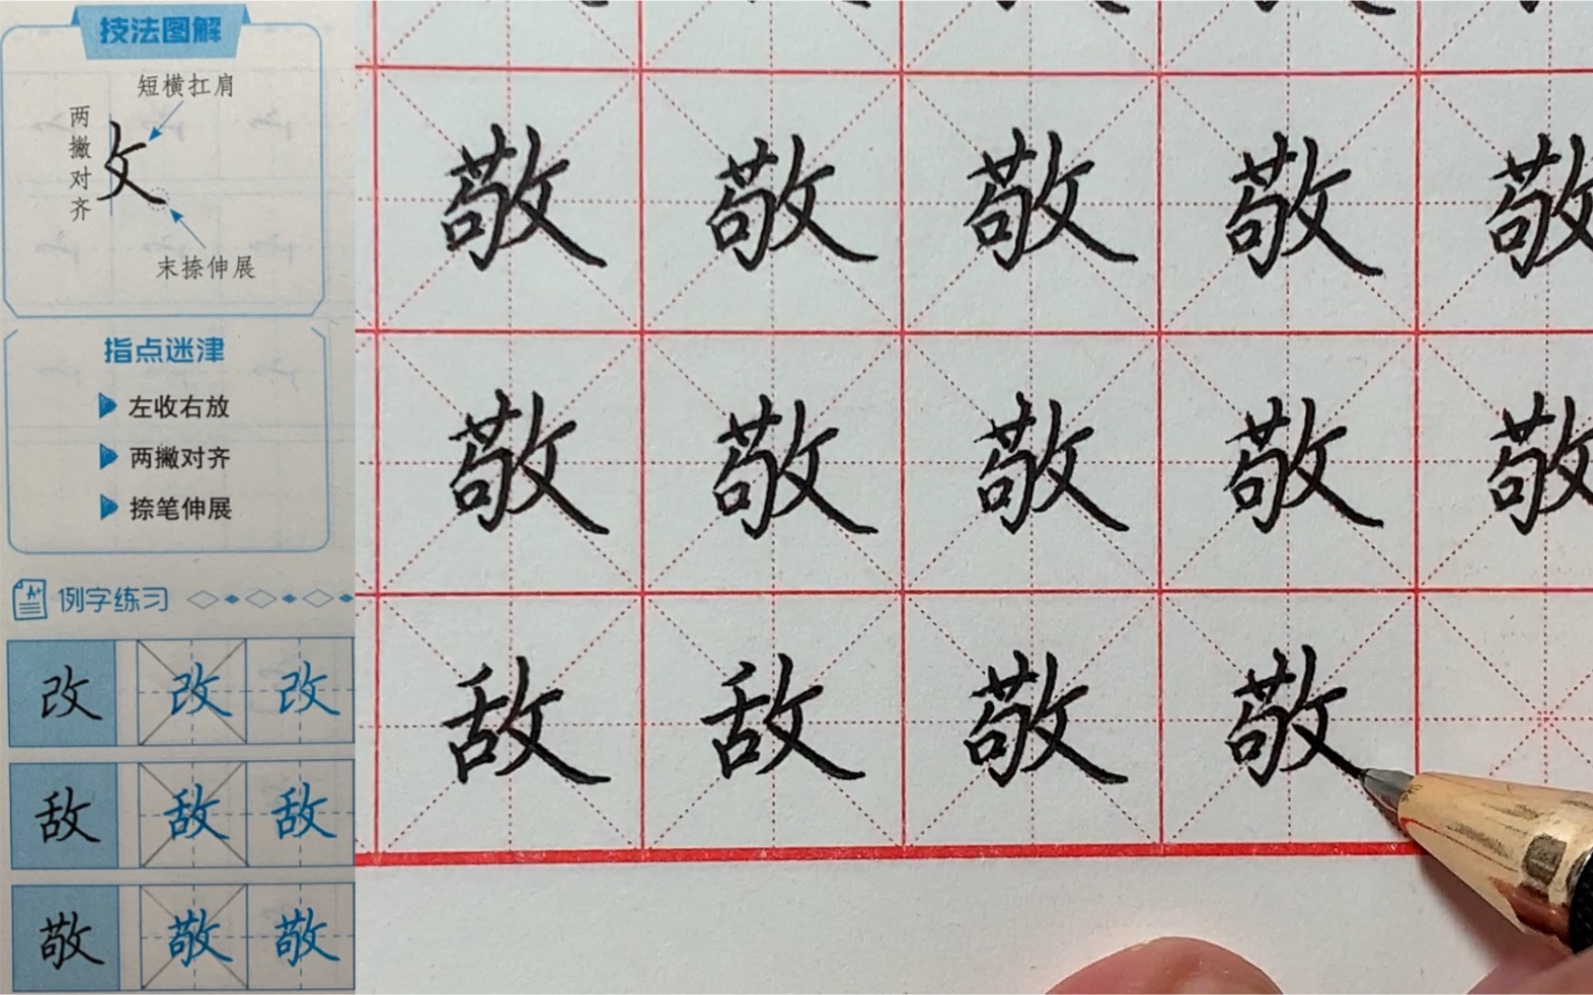 技法图解
短横扛肩
两撇对齐
攵
末捺伸展
指点迷津
左收右放
两撇对齐
捺笔伸展
例字练习
改 改 改
敌 敌 敌
敬 敬 敬
敬 敬 敬 敬 敬
敬 敬 敬 敬 敬
敌 敌 敬 敬